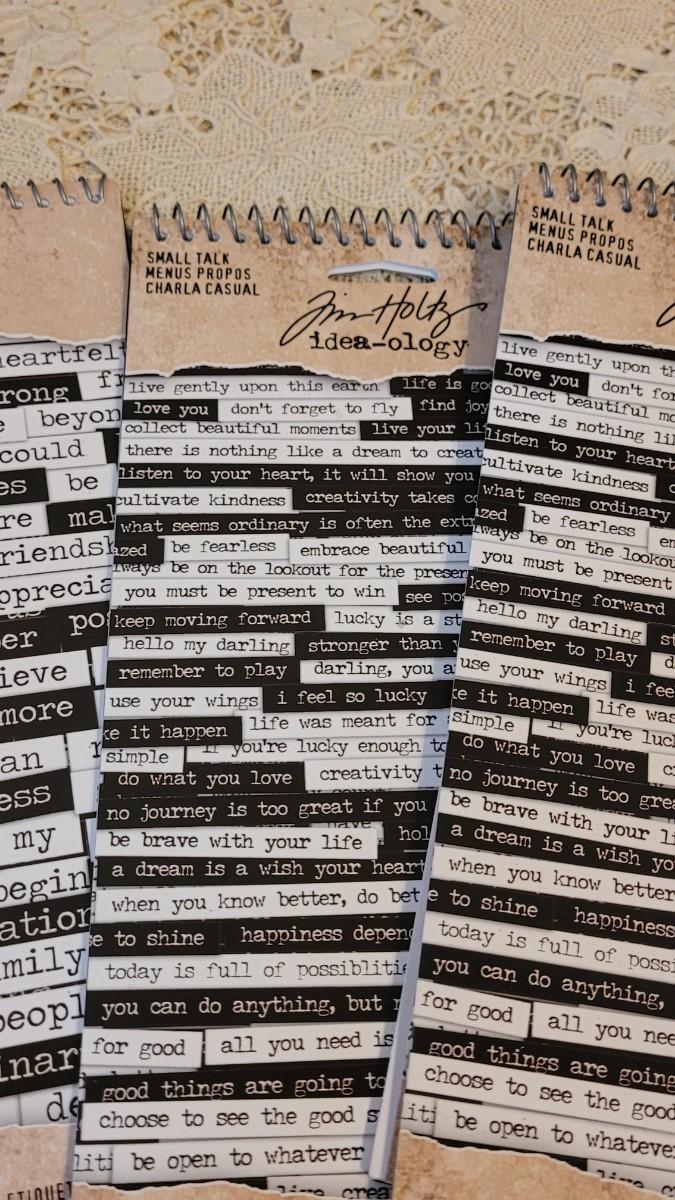 SMALL TALK
MENUS PROPOS
CHARLA CASUAL
Tim Holtz
idea-ology
live gently upon this earth life is go
love you don't forget to fly find joy
collect beautiful moments live your li
there is nothing like a dream to creat
listen to your heart, it will show you
cultivate kindness creativity takes co
what seems ordinary is often the extr
azed be fearless embrace beautiful
lways be on the lookout for the presen
you must be present to win see po
keep moving forward lucky is a st
hello my darling stronger than y
remember to play darling, you a
use your wings i feel so lucky
ke it happen life was meant for
simple if you're lucky enough to
do what you love creativity t
no journey is too great if you
have
be brave with your life hol
a dream is a wish your heart
when you know better, do bet
e to shine happiness depen
today is full of possiblitie
you can do anything, but
for good all you need is
good things are going to
choose to see the good s
liti be open to whatever
live crea
SMALL TALK
MENUS PROPOS
CHARLA CASUAL
live gently upon th
love you don't for
collect beautiful mo
there is nothing lik
listen to your heart
cultivate kindness
what seems ordinary
azed be fearless em
lways be on the lookou
you must be present
keep moving forward
hello my darling st
remember to play d
use your wings i fee
ke it happen life was
simple if you're luc
do what you love c
no journey is too grea
be brave with your li
a dream is a wish yo
when you know better
e to shine happiness
today is full of possi
you can do anything,
for good all you nee
good things are going
choose to see the good
liti be open to whateve
live cre
heartfelt
rong fr
e beyon
could
es be
re mak
riendsh
pprecia
er po
ieve
more
an
ess
my
begin
ation
mily
peopl
inar
de
ETIQUET